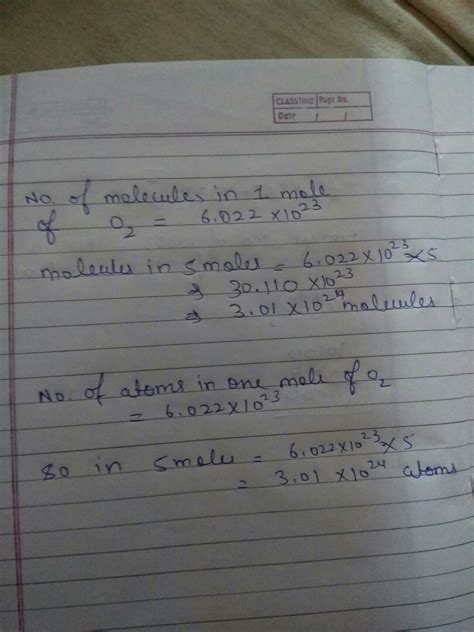 CLASSTIME Page No.
Date / /
No. of molecules in 1 mole
of O₂ = 6.022 ×10²³
molecules in 5 moles = 6.022×10²³×5
⇒ 30.110 ×10²³
⇒ 3.01 ×10²⁴ molecules
No. of atoms in one mole of O₂
= 6.022×10²³
So in 5 moles = 6.022×10²³×5
= 3.01 ×10²⁴ atoms